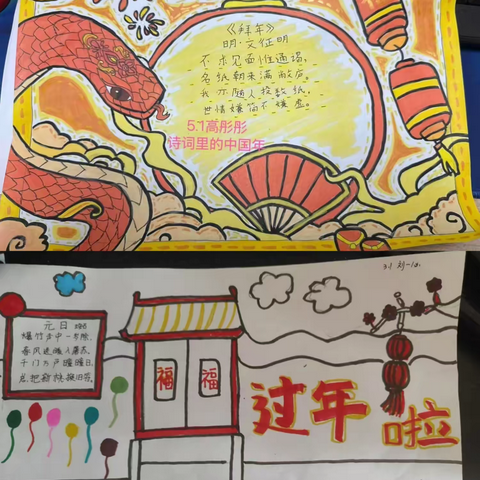 《拜年》
明·文征明
不求见面惟通谒,
名纸朝来满敝庐。
我亦随人投数纸,
世情嫌简不嫌虚。
5.1高彤彤
诗词里的中国年
元日
爆竹声中一岁除,
春风送暖入屠苏。
千门万户曈曈日,
总把新桃换旧符。
福 福
过年啦